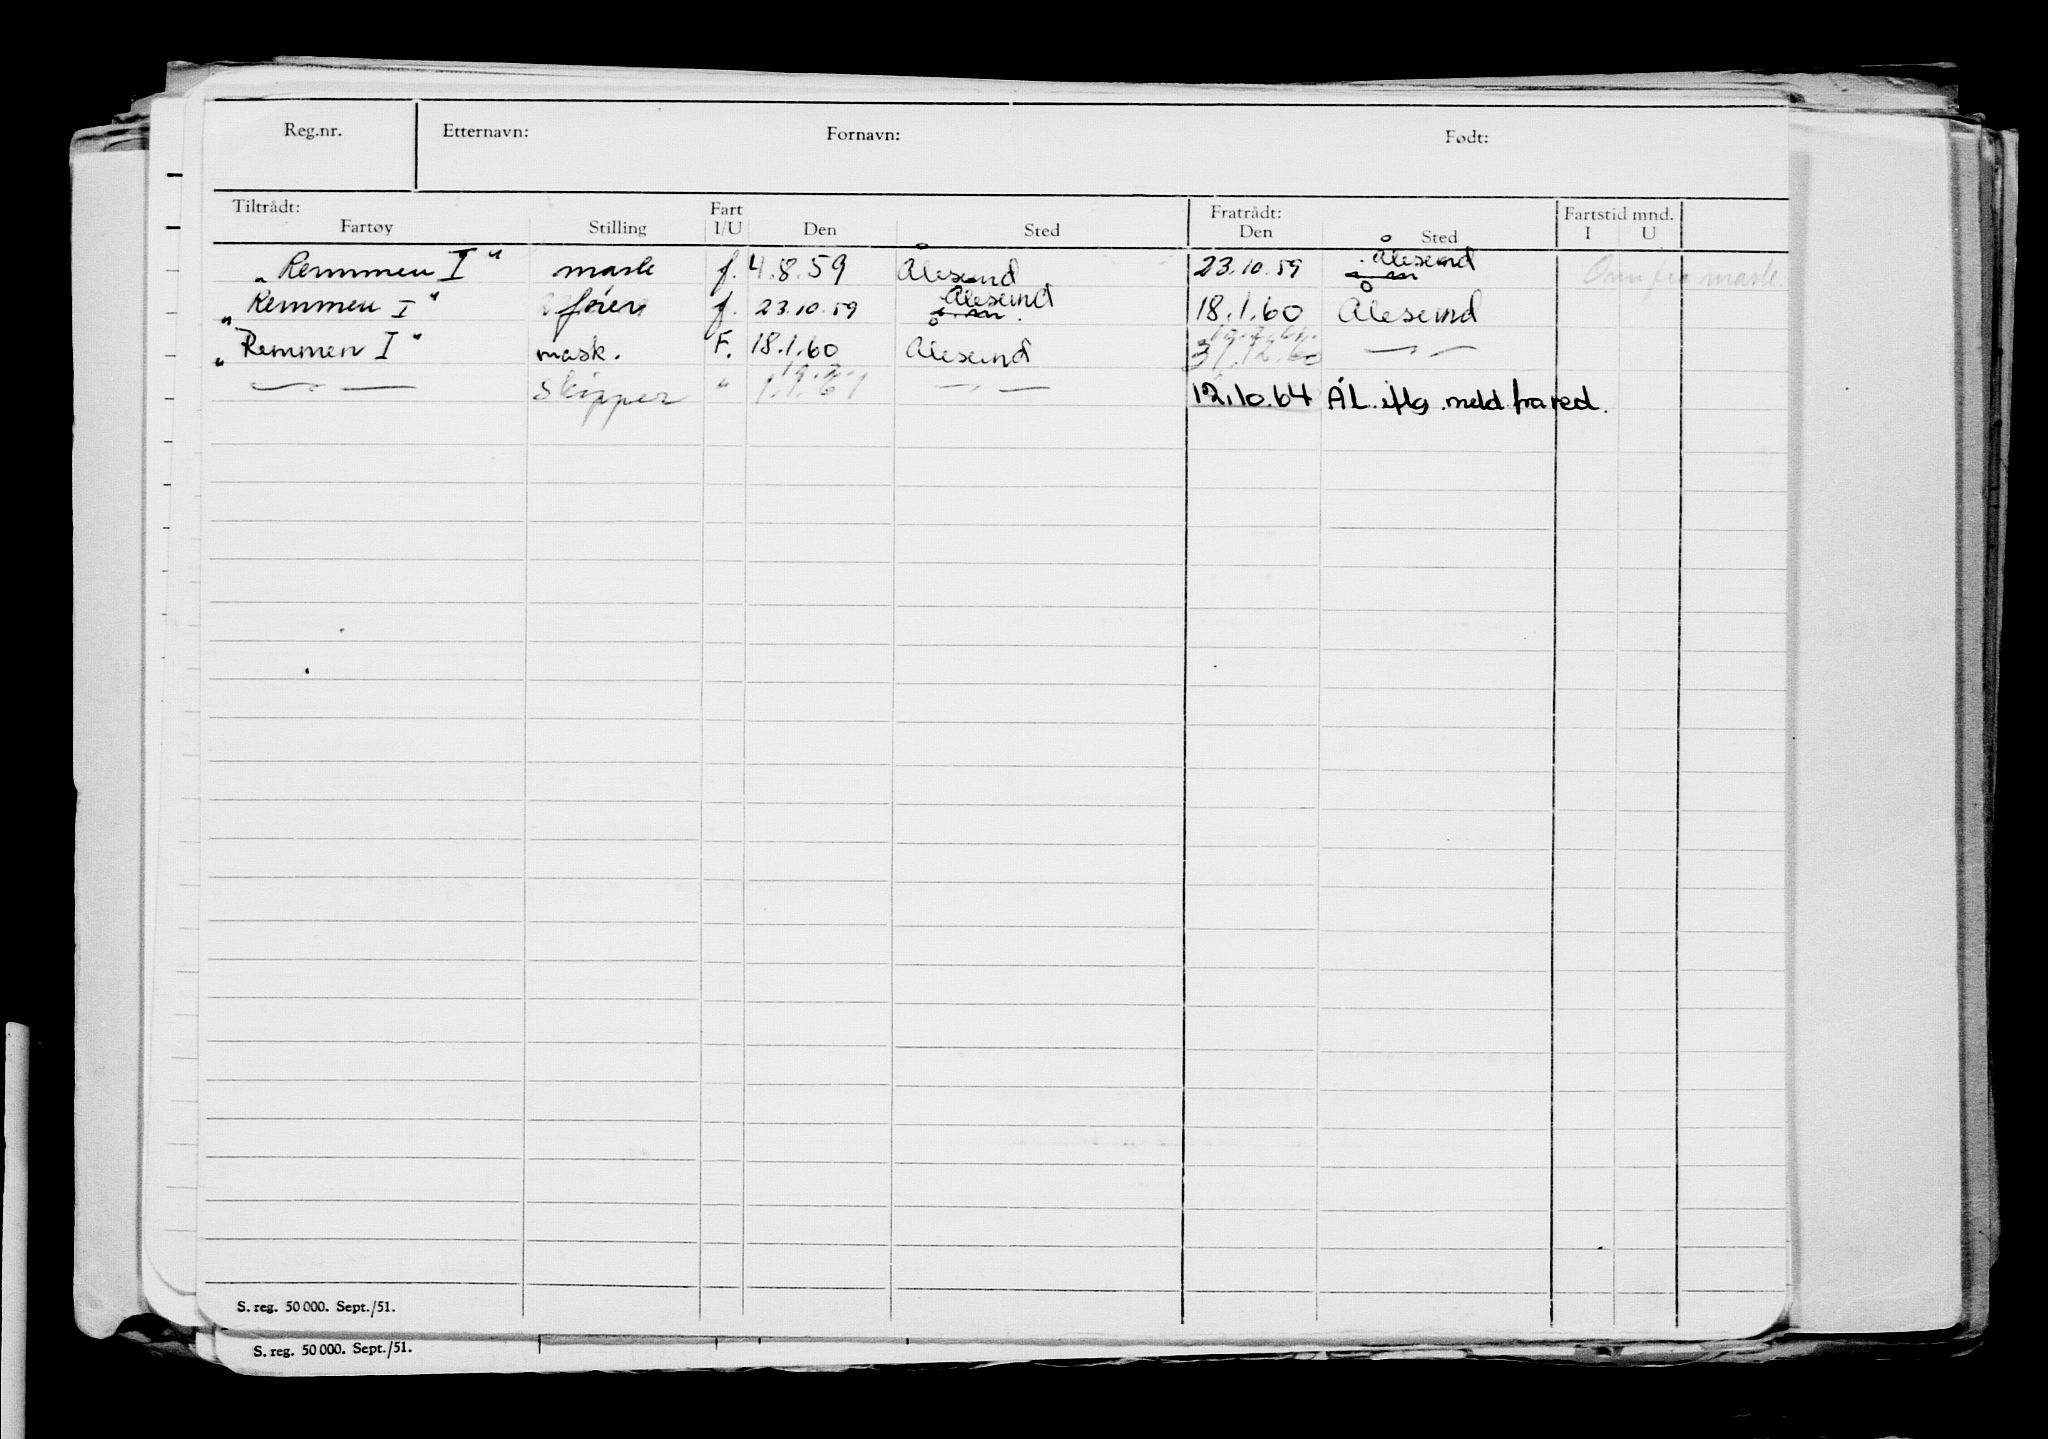 Reg.nr. Etternavn: Fornavn: Født:
Tiltrådt: Fart Fratrådt: Fartstid mnd.
Fartøy Stilling I/U Den Sted Den Sted I U
„Remmen I" f. 4.8.59 Ålesund 23.10.59 Ålesund
„Remmen I" fører f. 23.10.59 Ålesund 18.1.60 Ålesund
„Remmen I" mask. F. 18.1.60 Ålesund 31.12.60 — „ —
— „ — Skipper " 1.1.61 — „ — 12.10.64 ÅL. iflg. meld. fra red.
S. reg. 50 000. Sept./51.
S. reg. 50 000. Sept./51.